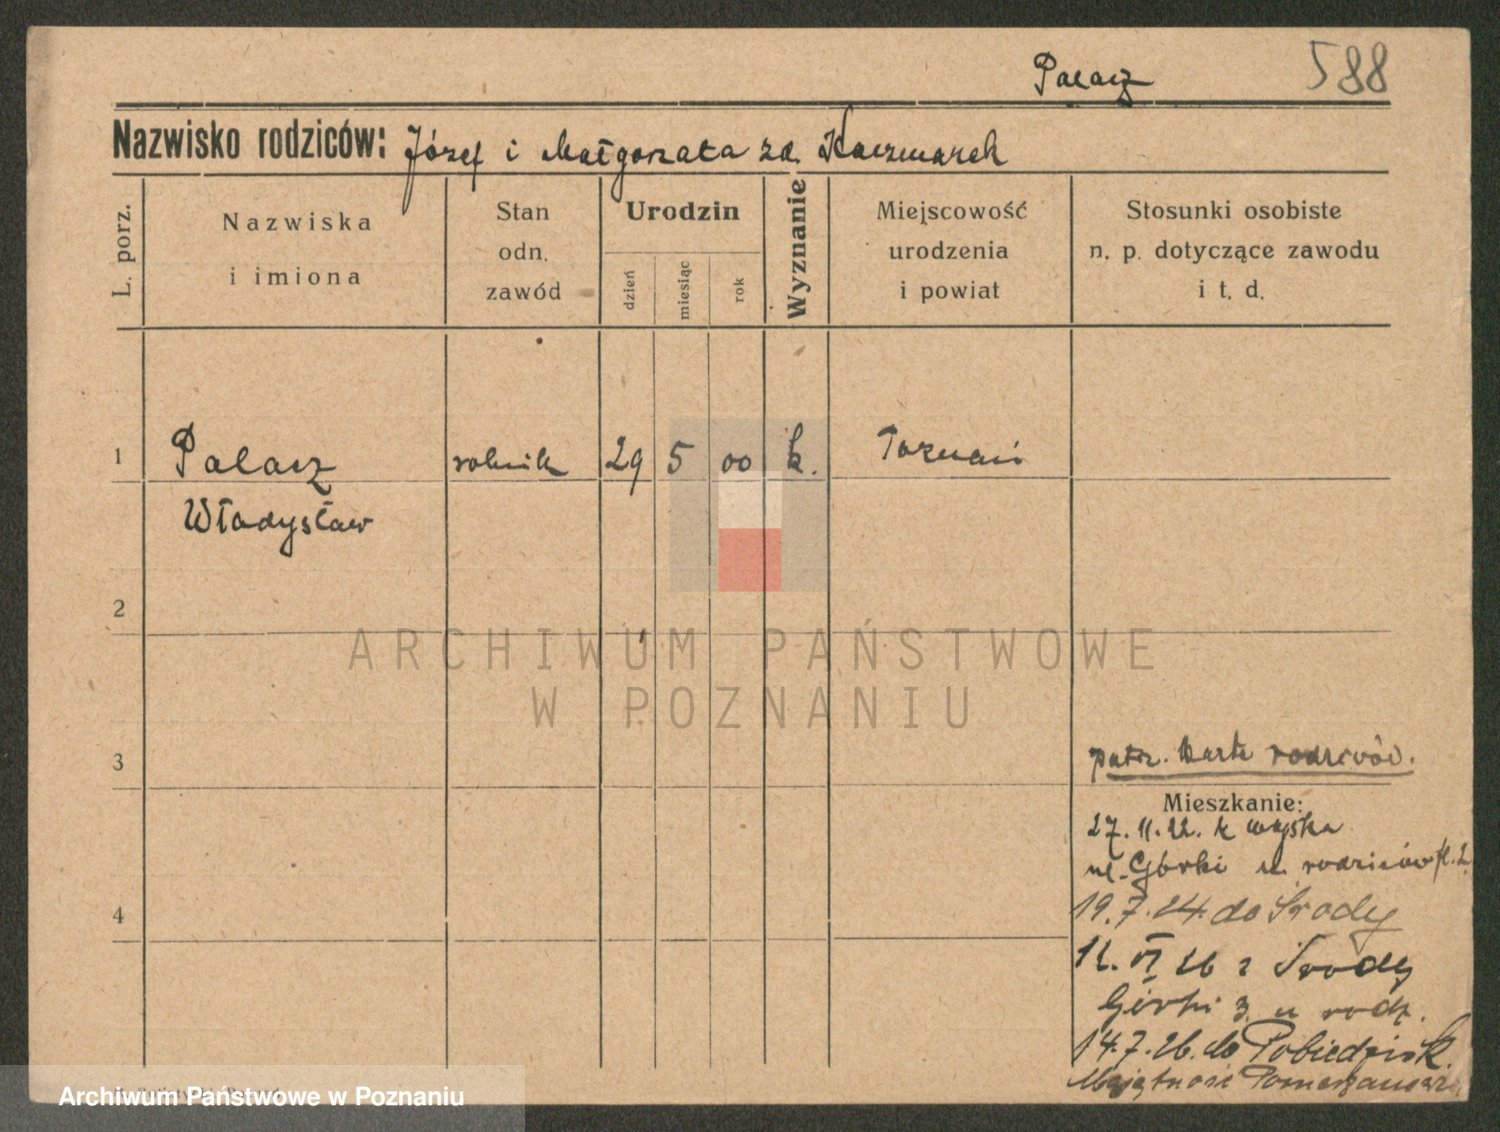 Palacz 588
Nazwisko rodziców: Józef i Małgorzata zd. Kaczmarek
L. porz.
Nazwiska
i imiona
Stan
odn.
zawód
Urodzin
dzień
miesiąc
rok
Wyznanie
Miejscowość
urodzenia
i powiat
Stosunki osobiste
n. p. dotyczące zawodu
i t. d.
1 Palacz rolnik 29 5 00 k. Poznań
Władysław
2
ARCHIWUM PAŃSTWOWE
W POZNANIU
3
patrz. karta rodziców.
Mieszkanie:
27. 11. 22. z wojska
ul. Górki u rodziców
4
19. 7. 24. do Środy
12. VI 26 z Środy
Górki 3 u rodz.
14. 7. 26. do Pobiedzisk
Majętność Pomarzanowice
Archiwum Państwowe w Poznaniu